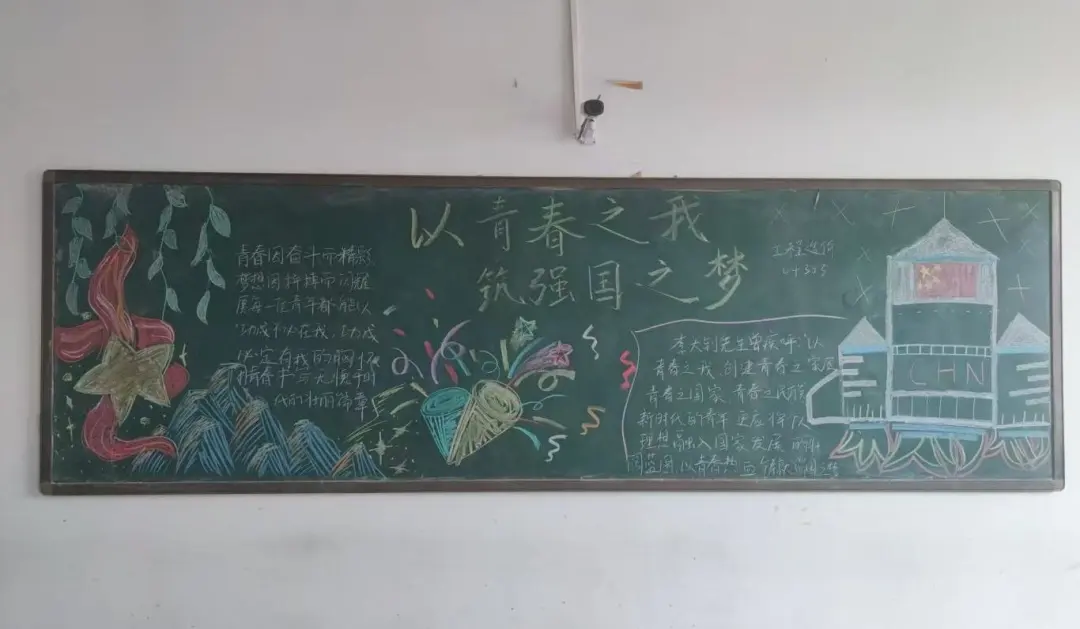 以青春之我
筑强国之梦
工程造价
青春因奋斗而精彩
梦想因拼搏而闪耀
愿每一位青年都能以
功成不必在我，功成
必定有我的胸怀
代的壮丽篇章
李大钊先生曾疾呼"以
青春之我 创建青春之家庭
青春之国家 青春之民族
新时代的青年 更应将
理想融入国家发展的
蓝图 以青春热血
CHN